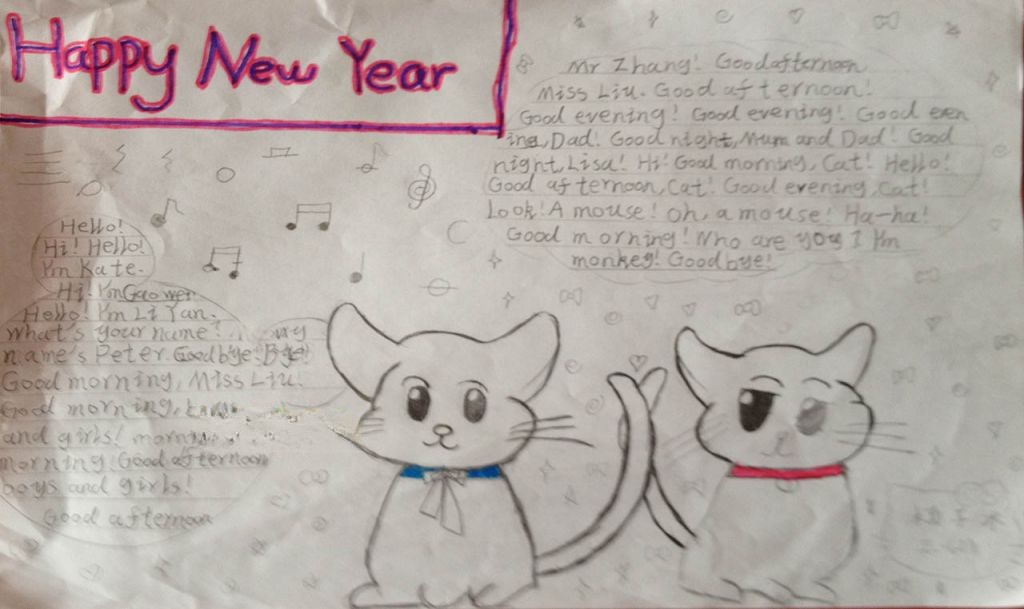 Happy New Year
Hello!
Hi! Hello!
I'm Kate.
Hi! I'm Gao wen
Hello! I'm Li Yan.
what's your name? my
name's Peter. Goodbye! Bye!
Good morning, Miss Liu.
Good morning,
and girls! morning
morning! Good afternoon
boys and girls!
Good afternoon
Mr Zhang! Good afternoon
Miss Liu. Good afternoon!
Good evening! Good evening! Good even
ing, Dad! Good night, Mum and Dad! Good
night, Lisa! Hi! Good morning, Cat! Hello!
Good afternoon, Cat! Good evening, Cat!
Look! A mouse! Oh, a mouse! Ha-ha!
Good morning! Who are you I I'm
monkey! Goodbye!